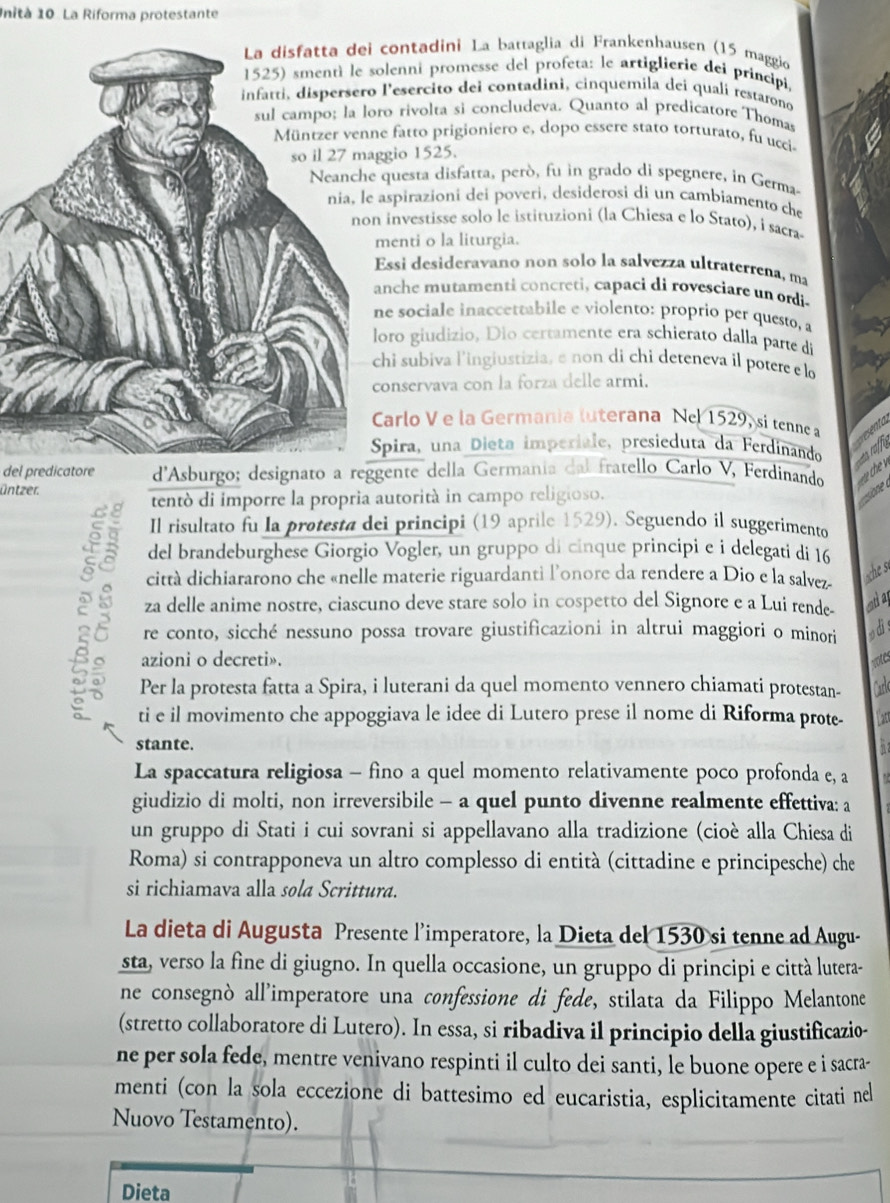 Unità 10 La Riforma protestante
La disfatta dei contadini La battaglia di Frankenhausen (15 maggio
1525) smentì le solenni promesse del profeta: le artiglierie dei principi,
infatti, dispersero l'esercito dei contadini, cinquemila dei quali restarono
sul campo; la loro rivolta si concludeva. Quanto al predicatore Thomas
Müntzer venne fatto prigioniero e, dopo essere stato torturato, fu ucci-
so il 27 maggio 1525.
Neanche questa disfatta, però, fu in grado di spegnere, in Germa-
nia, le aspirazioni dei poveri, desiderosi di un cambiamento che
non investisse solo le istituzioni (la Chiesa e lo Stato), i sacra-
menti o la liturgia.
Essi desideravano non solo la salvezza ultraterrena, ma
anche mutamenti concreti, capaci di rovesciare un ordi-
ne sociale inaccettabile e violento: proprio per questo, a
loro giudizio, Dio certamente era schierato dalla parte di
chi subiva l'ingiustizia, e non di chi deteneva il potere e lo
conservava con la forza delle armi.
Carlo V e la Germania luterana Nel 1529, si tenne a
Spira, una Dieta imperiale, presieduta da Ferdinando
d'Asburgo; designato a reggente della Germania dal fratello Carlo V, Ferdinando
tentò di imporre la propria autorità in campo religioso.
Il risultato fu la protesta dei principi (19 aprile 1529). Seguendo il suggerimento
del brandeburghese Giorgio Vogler, un gruppo di cinque principi e i delegati di 16
città dichiararono che «nelle materie riguardanti l'onore da rendere a Dio e la salvez-
za delle anime nostre, ciascuno deve stare solo in cospetto del Signore e a Lui rende-
re conto, sicché nessuno possa trovare giustificazioni in altrui maggiori o minori
azioni o decreti».
Per la protesta fatta a Spira, i luterani da quel momento vennero chiamati protestan-
ti e il movimento che appoggiava le idee di Lutero prese il nome di Riforma prote-
stante.
La spaccatura religiosa – fino a quel momento relativamente poco profonda e, a
giudizio di molti, non irreversibile – a quel punto divenne realmente effettiva: a
un gruppo di Stati i cui sovrani si appellavano alla tradizione (cioè alla Chiesa di
Roma) si contrapponeva un altro complesso di entità (cittadine e principesche) che
si richiamava alla sola Scrittura.
La dieta di Augusta Presente l'imperatore, la Dieta del 1530 si tenne ad Augu-
sta, verso la fine di giugno. In quella occasione, un gruppo di principi e città lutera-
ne consegnò all'imperatore una confessione di fede, stilata da Filippo Melantone
(stretto collaboratore di Lutero). In essa, si ribadiva il principio della giustificazio-
ne per sola fede, mentre venivano respinti il culto dei santi, le buone opere e i sacra-
menti (con la sola eccezione di battesimo ed eucaristia, esplicitamente citati nel
Nuovo Testamento).
Dieta
del predicatore
üntzer.
protestano nei confronti
della Chiesa Cattolica